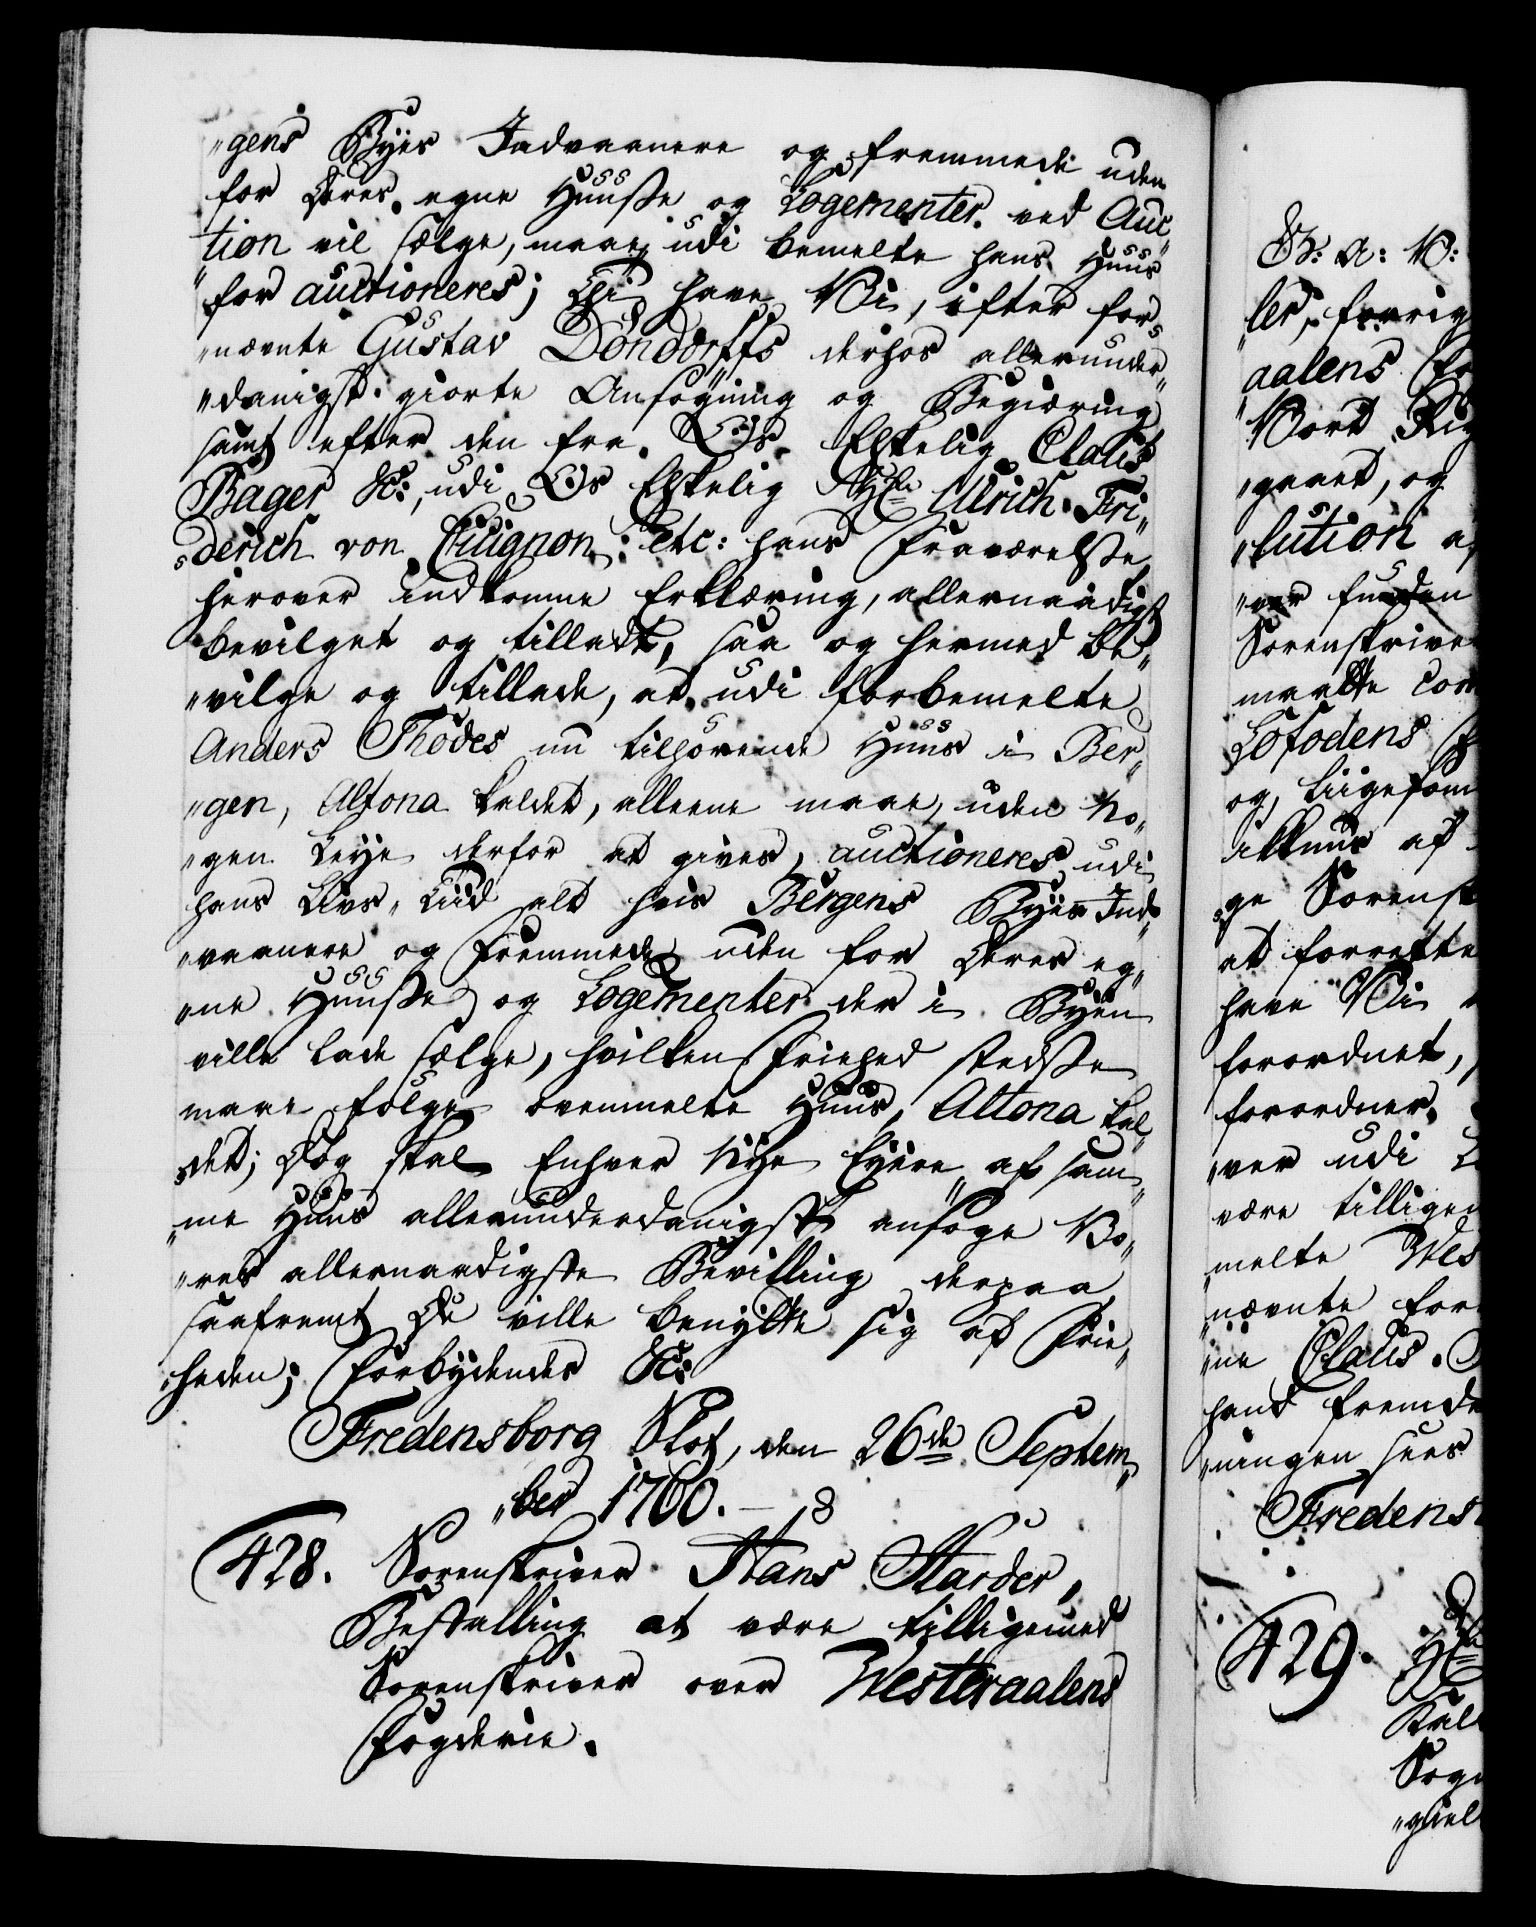 "gens Byes Indvaanere og fremmede uden
for deres egne Huusse og Logementer ved Auc¬
"tion vil sælge, maae udi bemelte hans Huus
for auctioneres; Thi have Vi, efter for¬
"nævnte Gustav Döndorffs derhos allerunder¬
"danigst giorte Ansøgning og Begiæring
samt efter den fra Os Elskelig Claus
Bager &c:, udi Os Elskelig Hr: Ulrich Fri¬
derich von Cicignon: etc: hans Fraværelsse
herover indkomne Erklæring, allernaadigst
bevilget og tilladt, saa og hermed be¬
"vilge og tillade, at udi forbemelte
Anders Thodes nu tilhørende Huus i Ber¬
"gen, Altona kaldet, alleene maae, uden No¬
"gen Leye derfor at gives, auctioneres udi
hans Livs-Tiid alt hvis Bergens Byes Ind¬
"vaanere og Fremmede uden for deres eg¬
"ne Huusse og Logementer der i Byen
ville lade sælge, hvilken Friehed stedsse
maae følge ovenmelte Huus, Altona kal¬
det; Dog skal Enhver Nye Eyere af sam¬
"me Huus allerunderdanigst ansøge Vo¬
"res allernaadigste Bevilling derpaa
saafremt De ville benytte sig af Frie¬
"heden; Forbydendes &c:
Fredensborg Slot, den 26de Septem¬
"ber 1760.
428. Sorenskriver Hans Harder,
Bestalling at være tilligemed
Sorenskriver over Westeraalens
Fogderie.
G: A: V:
aalens
Vort
"gaaet, og
"lution
"ver funden
Sorenskrive
maatte
Lofodens
og, liigesom
af
ge Sorensk
at forrette
have Vi
forordnet,
forordner.
"ver udi
være tillige
melte Wes
nævnte for
ne Claus.
hand fremde
"ningen sees
Fredens
429. Hr
Kal
Sog
"giel